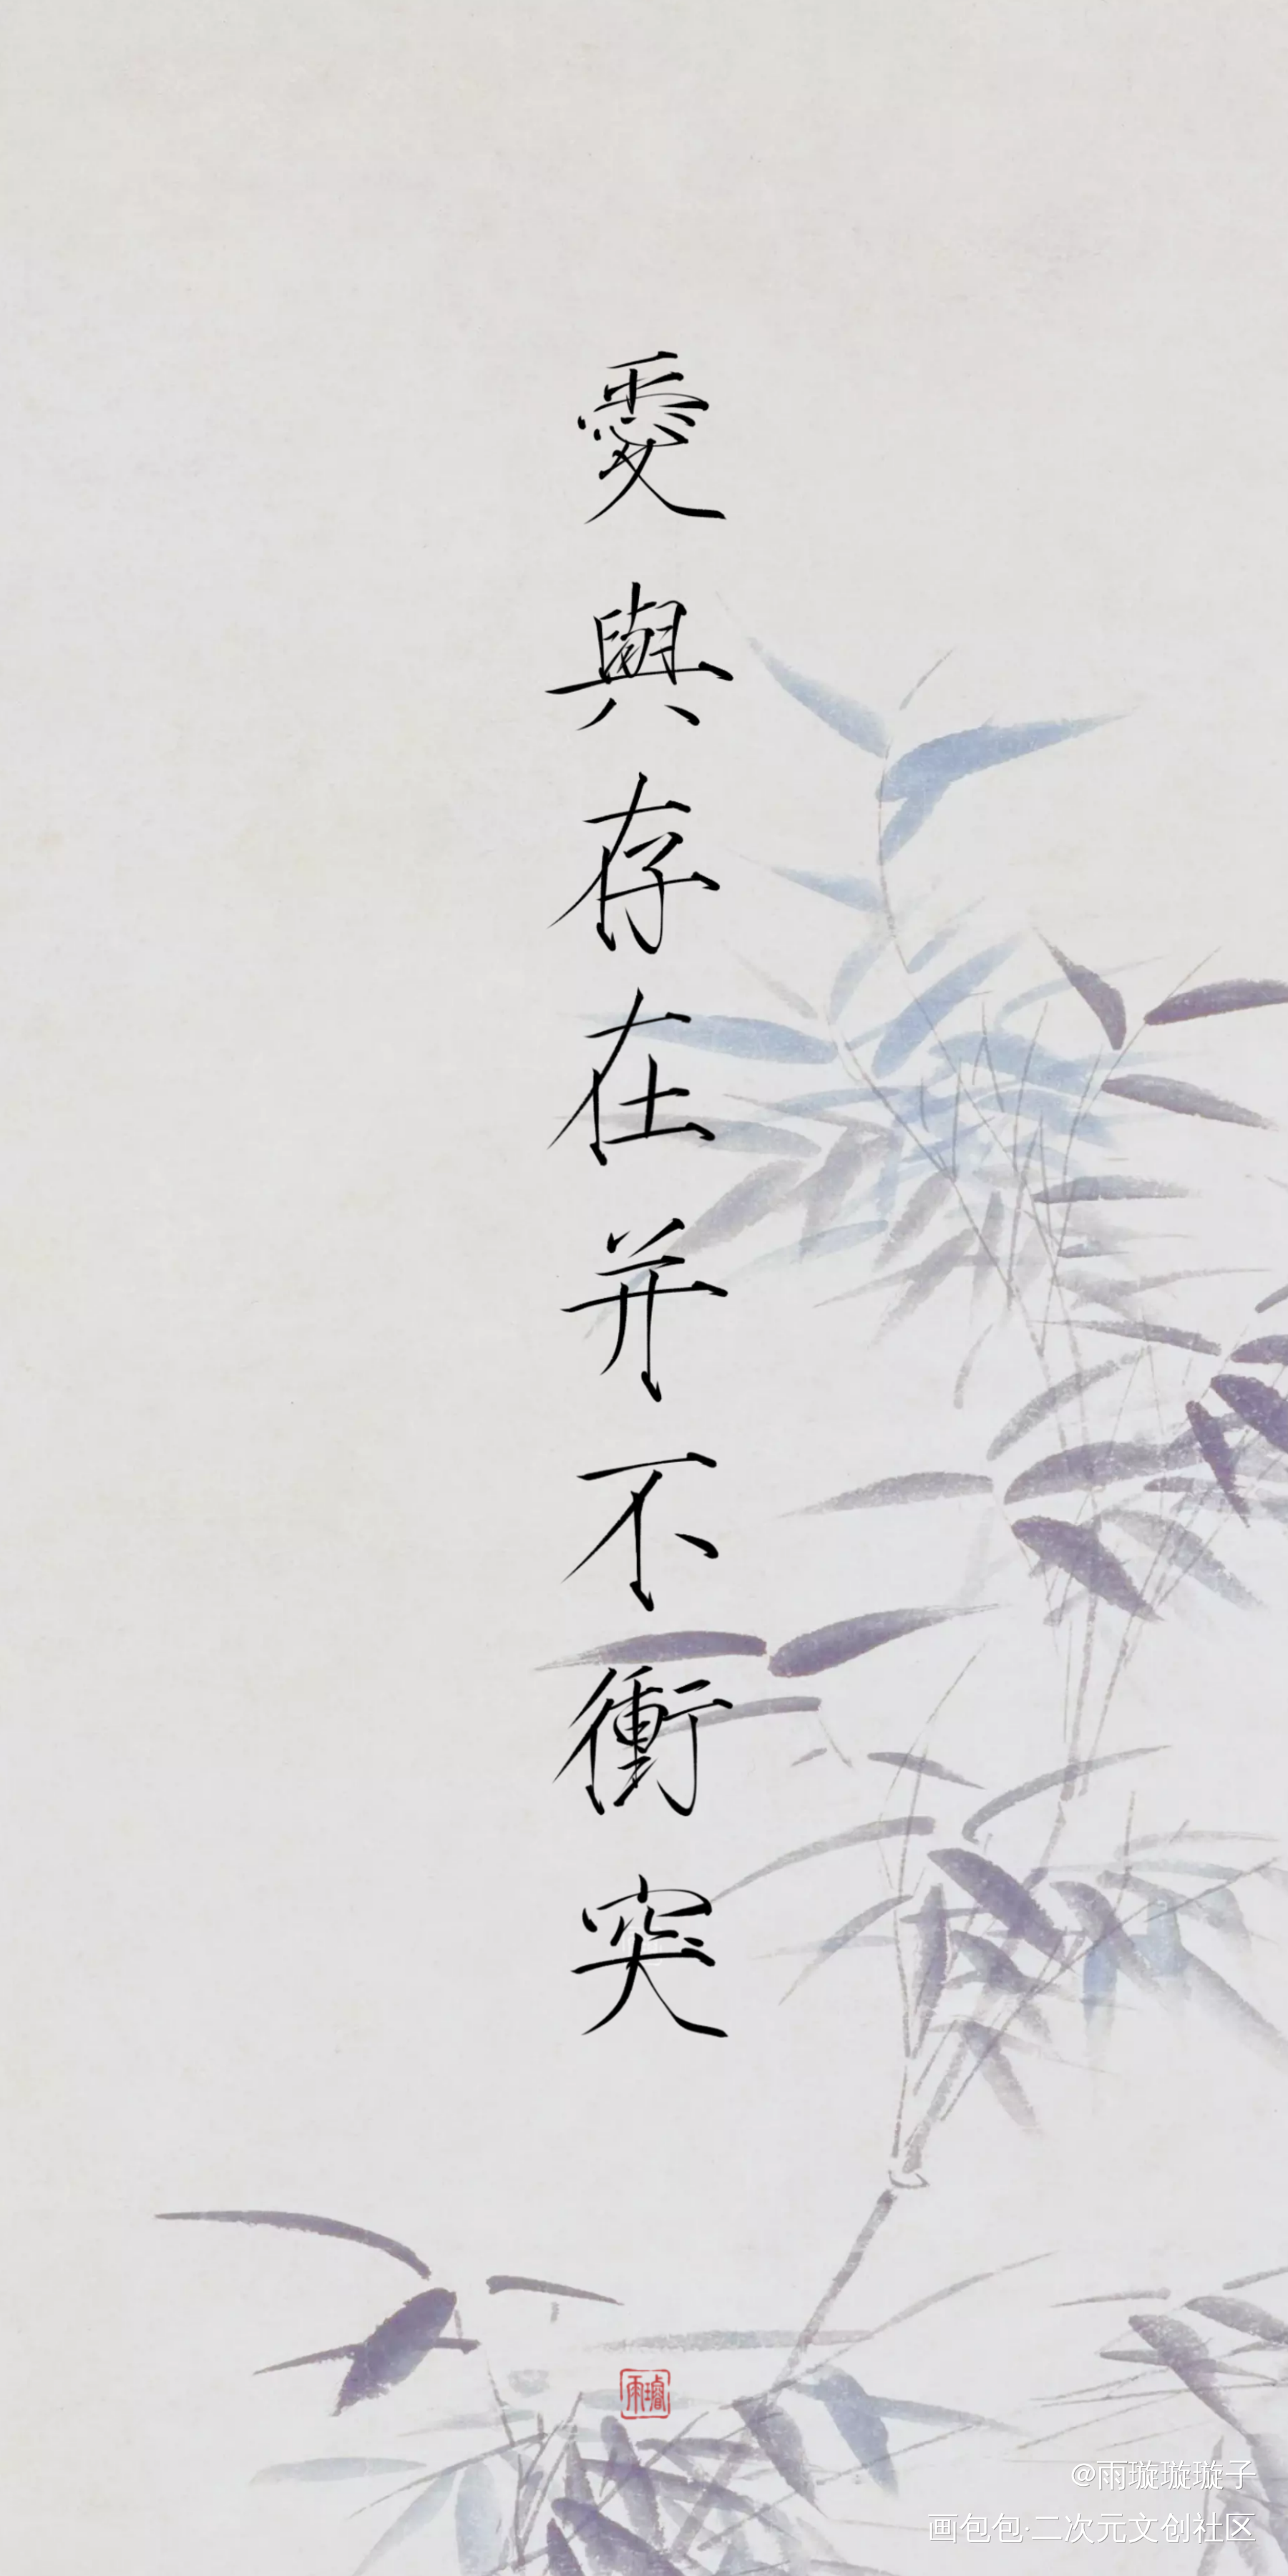 愛與存在并不衝突
雨璇
@雨璇璇璇子
画包包·二次元文创社区